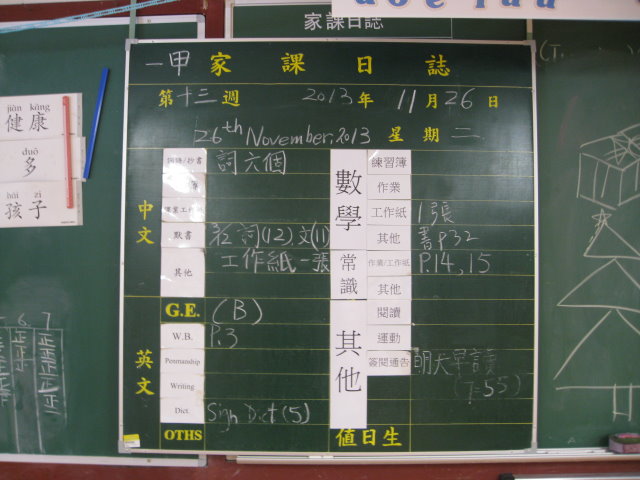 家課日誌
一甲 家課日誌
第十三週 2013年 11月26日
26th November, 2013 星期二
中文
詞六個
默書
詞(12) 文(11)
其他
工作紙一張
英文
G.E. (B)
W.B. P.3
Penmanship
Writing
Dict. Sign Dict (5)
OTHS
數學
練習簿
作業
工作紙 1張
其他 書P32
常識
作業/工作紙 P.14,15
其他
其他
閱讀
運動
簽閱通告 明天早讀
(7:55)
值日生
jiàn kāng
健康
duō
多
hái zi
孩子
6. 7